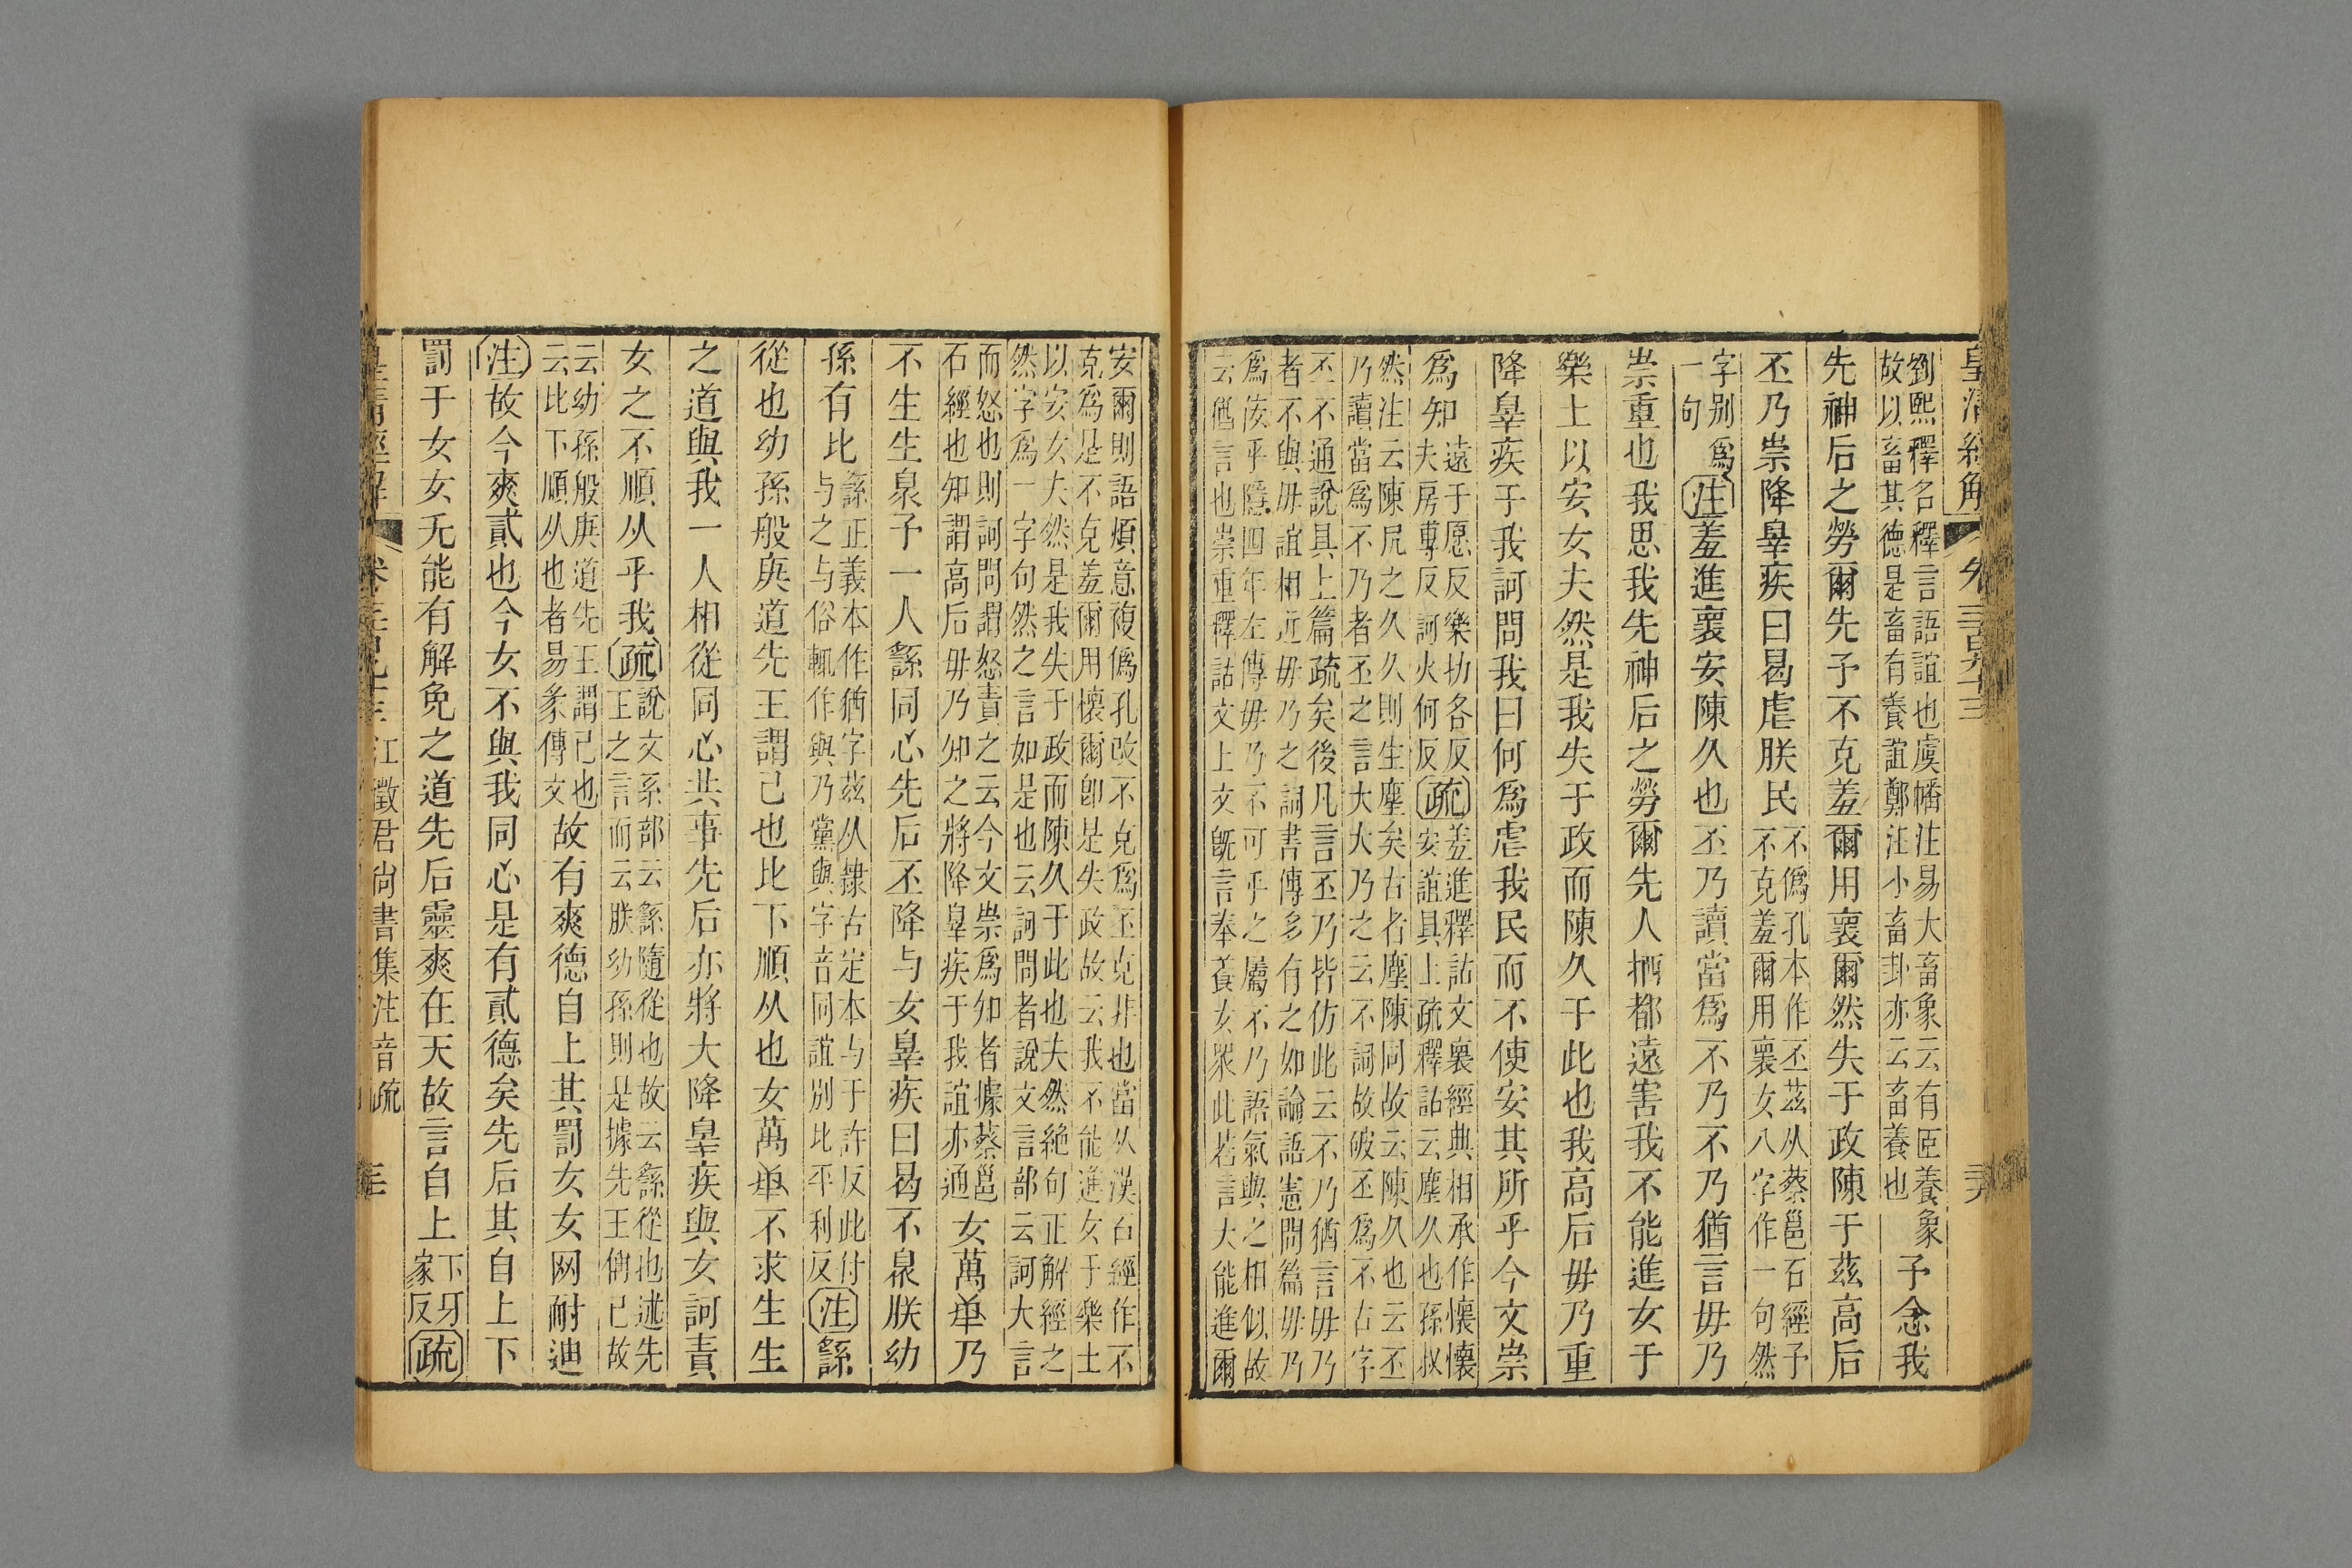 皇清經解
劉熙釋名釋言語誼也虞幡注易大畜象云有臣養象
故以畜其德是畜有養誼鄭注小畜卦亦云畜養也
予念我
先神后之勞爾先予不克羞爾用襄爾然失于政陳于茲高后
丕乃祟降辠疾曰曷虐朕民
不僞孔本作丕茲从蔡邕石經予
不克羞爾用襄女八字作一句然
字別爲
一句
注羞進襄安陳久也丕乃讀當爲不乃不乃猶言毋乃
祟重也我思我先神后之勞爾先人捂都遠害我不能進女于
樂土以安女夫然是我失于政而陳久于此也我高后毋乃重
降辠疾于我訶問我曰何爲虐我民而不使安其所乎今文祟
爲知
遠于愿反樂扐各反
夫房專反訶火何反
疏
羞進釋詁文襄經典相承作懷懷
安誼具上疏釋詁云塵久也孫叔
然注云陳凥之久久則生塵矣古者塵陳同故云陳久也云丕
乃讀當爲不乃者丕之言大大乃之云不詞故破丕爲不古字
丕不通說具上篇疏矣後凡言丕乃皆仿此云不乃猶言毋乃
者不與毋誼相近毋乃之詞書傳多有之如論語憲問篇毋乃
爲佞乎隱四年左傳毋乃不可乎之屬不乃語氣與之相似故
云猶言也祟重釋詁文上文旣言奉養女眾此若言大能進爾
安爾則語煩意複僞孔改不克爲丕克非也當从漢石經作不
克爲是不克羞爾用懷爾卽是失政故云我不能進女于樂土
以安女大然是我失于政而陳久于此也夫然絶句正解經之
然字爲一字句然之言如是也云訶問者說文言部云訶大言
而怒也則訶問謂怒責之云今文祟爲知者據蔡邕
石經也知謂高后毋乃知之將降辠疾于我誼亦通
女萬單乃
不生生泉予一人繇同心先后丕降与女辠疾曰曷不泉朕幼
孫有比
繇正義本作猶字茲从隸古定本与于許反此付
与之与俗輒作與乃黨與字音同誼別比平利反
注繇
從也幼孫般庚道先王謂己也比下順从也女萬單不求生生
之道與我一人相從同心共事先后亦將大降辠疾與女訶責
女之不順从乎我
疏
說文系部云繇隨從也故云繇從也述先
王之言而云朕幼孫則是據先王偁己故
云幼孫般庚道先王謂己也
云比下順从也者易彖傳文
故有爽德自上其罰女女网耐迪
注故今爽貳也今女不與我同心是有貳德矣先后其自上下
罰于女女无能有解免之道先后靈爽在天故言自上
下牙
家反
疏
江徵君尙書集注音疏